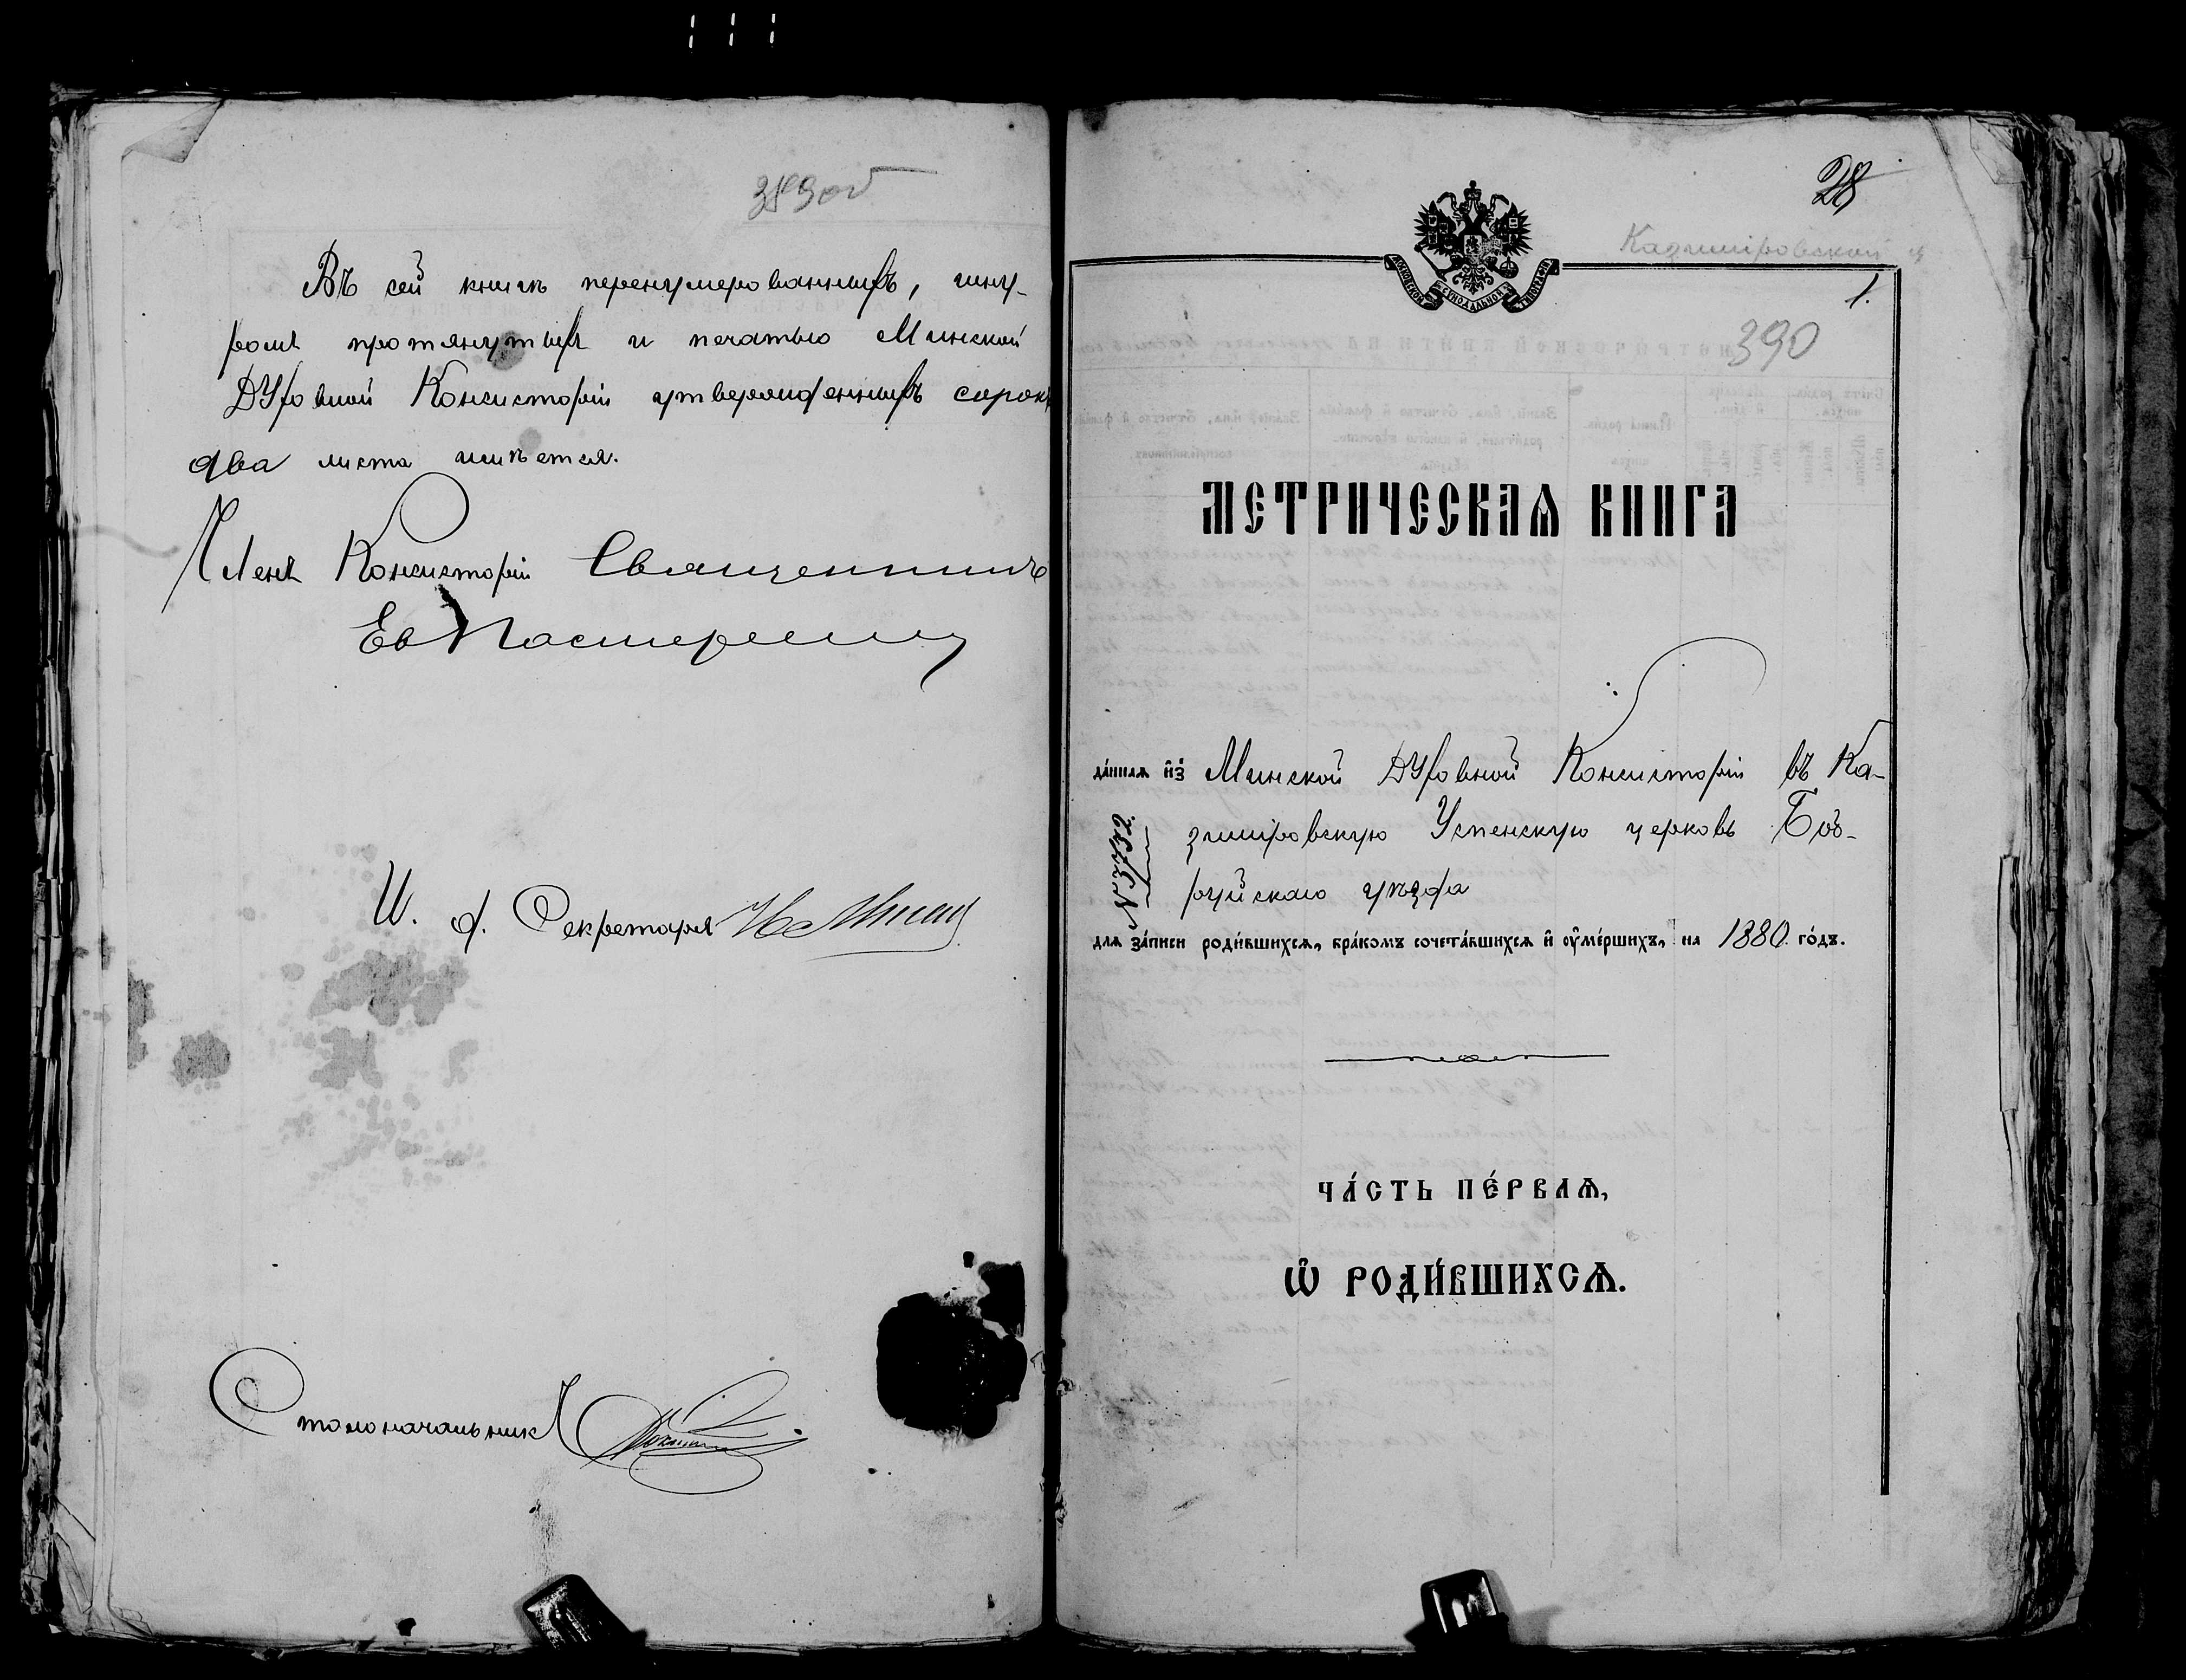 389об
Въ сей книгѣ перенумерованныхъ, шну-
ромъ протянутыхъ и печатью Минской
Духовной Консисторіи утвержденныхъ сорокъ
два листа имѣется.
Членъ Консисторіи Священникъ
И. д. Секретаря
Столоначальникъ
28
Казимiровской ц
МОСКОВСКОЙ СѴНОДАЛЬНОЙ ТИПОГРАФІИ
1.
390
МЕТРИЧЕСКАѦ КНИГА
да́ннаѧ и҆з̾ Минской Духовной Консисторіи въ Ка-
зимiровскую Успенскую церковь Боб-
руйскаго уѣзда
№ 3732.
длѧ за́писи роди́вшихсѧ, бра́комъ сочета́вшихсѧ и҆ ᲂу҆ме́ршихъ, на 1880 го́дъ.
ЧА́СТЬ ПЕ́РВАѦ,
Ѽ РОДИ́ВШИХСѦ.